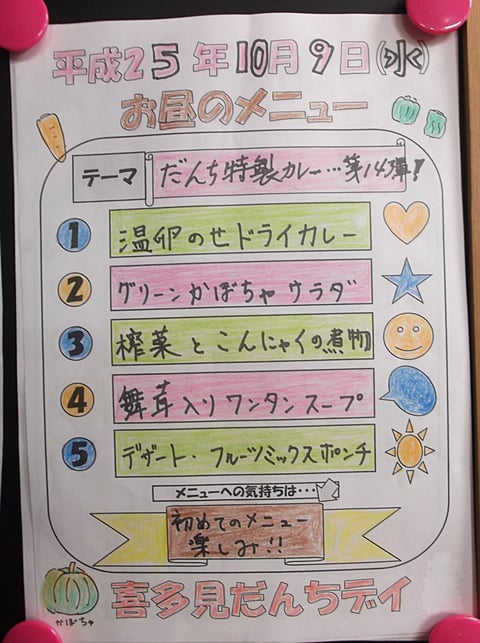 平成25年10月9日(水)
お昼のメニュー
テーマ だんち特製カレー…第14弾!
1 温卵のせドライカレー
2 グリーンかぼちゃサラダ
3 搾菜とこんにゃくの煮物
4 舞茸入りワンタンスープ
5 デザート・フルーツミックスポンチ
メニューへの気持ちは…
初めてのメニュー
楽しみ!!
かぼちゃ
喜多見だんちデイ